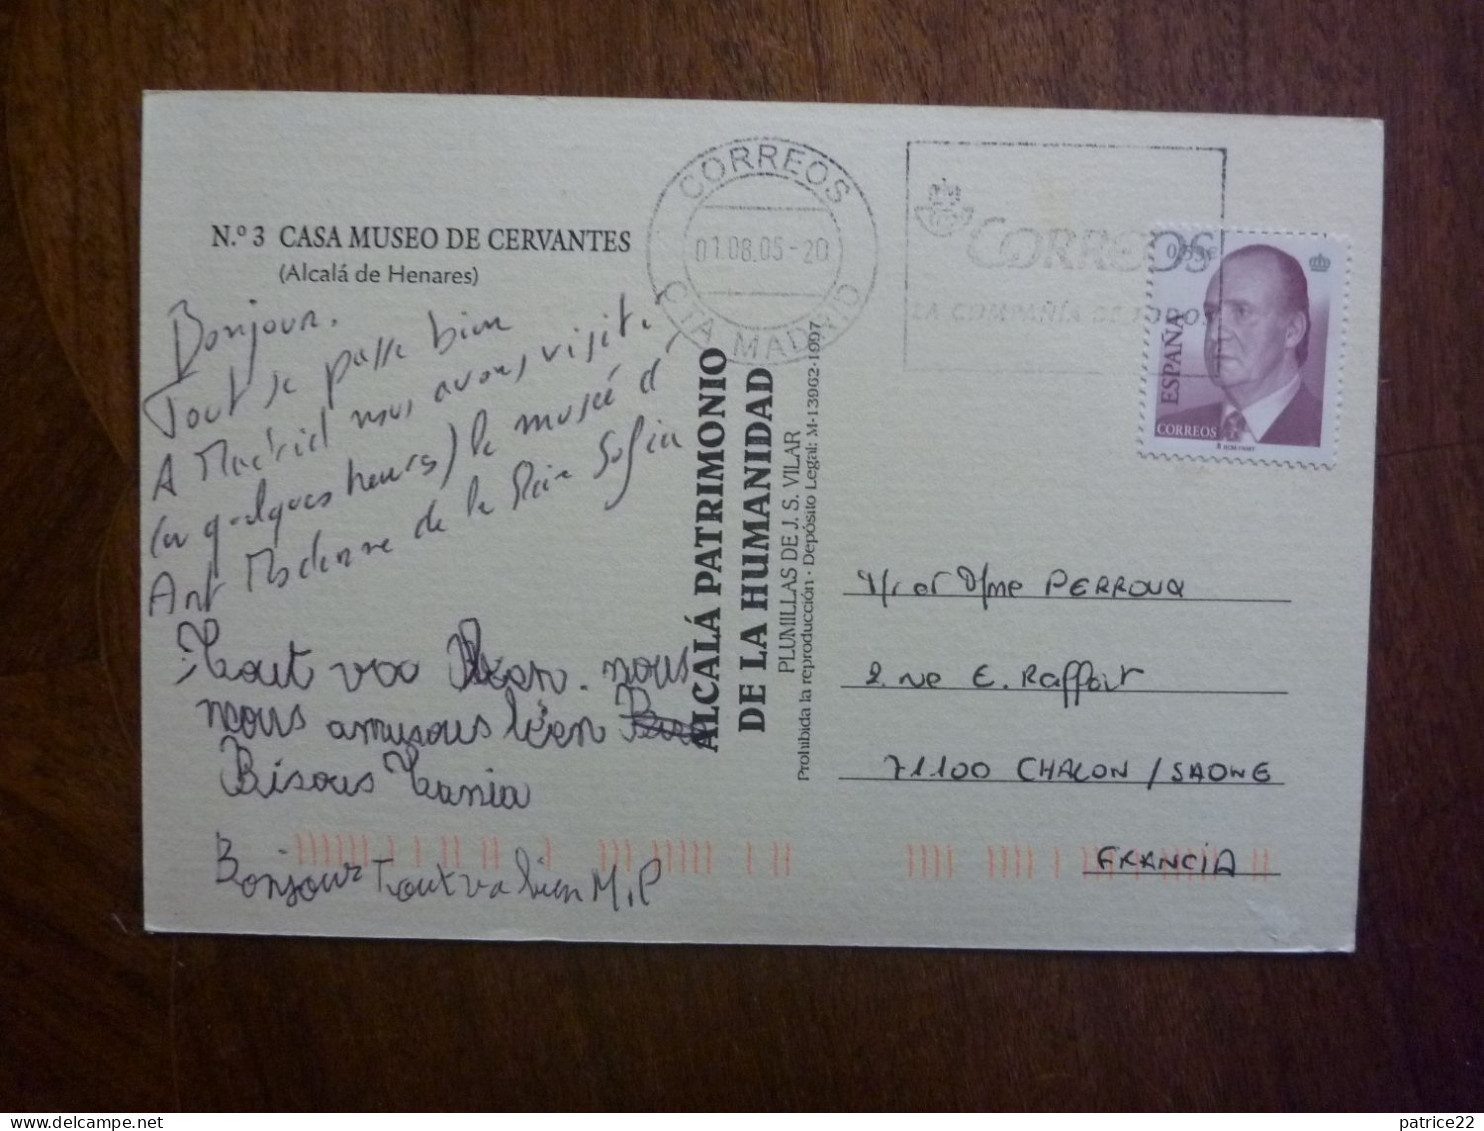 N.º 3 CASA MUSEO DE CERVANTES
(Alcalá de Henares)
Bonjour.
Tout se passe bien
A Madrid nous avons visité
(en quelques heures) le musée d'
Art Moderne de la Reine Sofia
Tout vaa bien. nous
nous amusous bien
Bisous Tania
Bonjour Tout va bien M.P
ALCALÁ PATRIMONIO
DE LA HUMANIDAD
PLUMILLAS DE J. S. VILAR
Prohibida la reproducción · Depósito Legal: M-13962-1997
CORREOS
01.08.05-20
CTA MADRID
CORREOS
LA COMPAÑÍA DE TODOS
ESPAÑA
CORREOS
Mr et Mme PERROUX
2 rue E. Raffort
71100 CHALON / SAONE
FRANCIA
patrice22